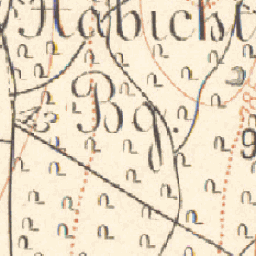 Habicht
Bg.
9